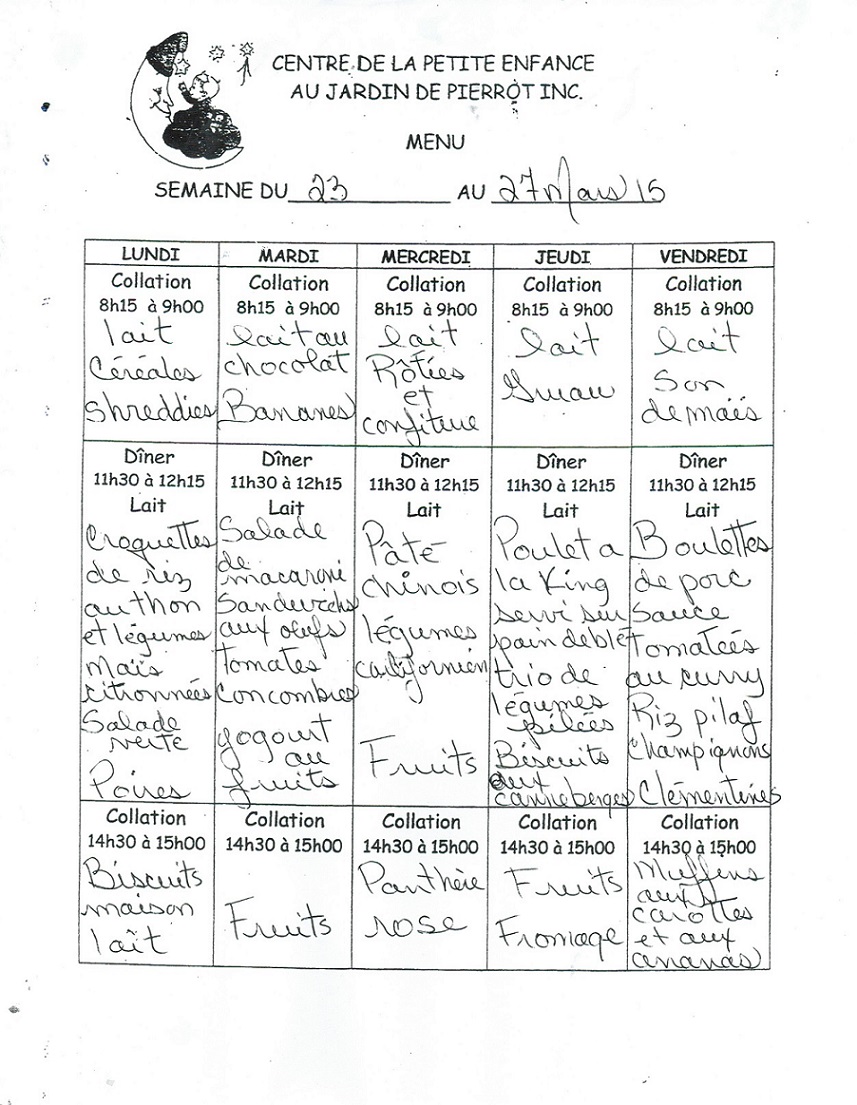 CENTRE DE LA PETITE ENFANCE
AU JARDIN DE PIERROT INC.
MENU
SEMAINE DU 23 AU 27 Mars 15
LUNDI MARDI MERCREDI JEUDI VENDREDI
Collation
8h15 à 9h00
lait
Céréales
Shreddies
Collation
8h15 à 9h00
lait au
chocolat
Bananes
Collation
8h15 à 9h00
lait
Rôties
et
confiture
Collation
8h15 à 9h00
lait
Gruau
Collation
8h15 à 9h00
lait
Son
de maïs
Dîner
11h30 à 12h15
Lait
Croquettes
de riz
au thon
et légumes
Maïs
citronnées
Salade
verte
Poires
Dîner
11h30 à 12h15
Lait
Salade
de
macaroni
Sandwichs
aux oeufs
tomates
Concombres
yogourt
au
fruits
Dîner
11h30 à 12h15
Lait
Pâté
chinois
légumes
californien
Fruits
Dîner
11h30 à 12h15
Lait
Poulet a
la King
servi sur
pain de blé
trio de
légumes
Biscuits
aux
canneberges
Dîner
11h30 à 12h15
Lait
Boulettes
de porc
Sauce
Tomatées
au curry
Riz pilaf
Champignons
Clémentines
Collation
14h30 à 15h00
Biscuits
maison
lait
Collation
14h30 à 15h00
Fruits
Collation
14h30 à 15h00
Panthère
rose
Collation
14h30 à 15h00
Fruits
Fromage
Collation
14h30 à 15h00
Muffins
aux
carottes
et aux
ananas